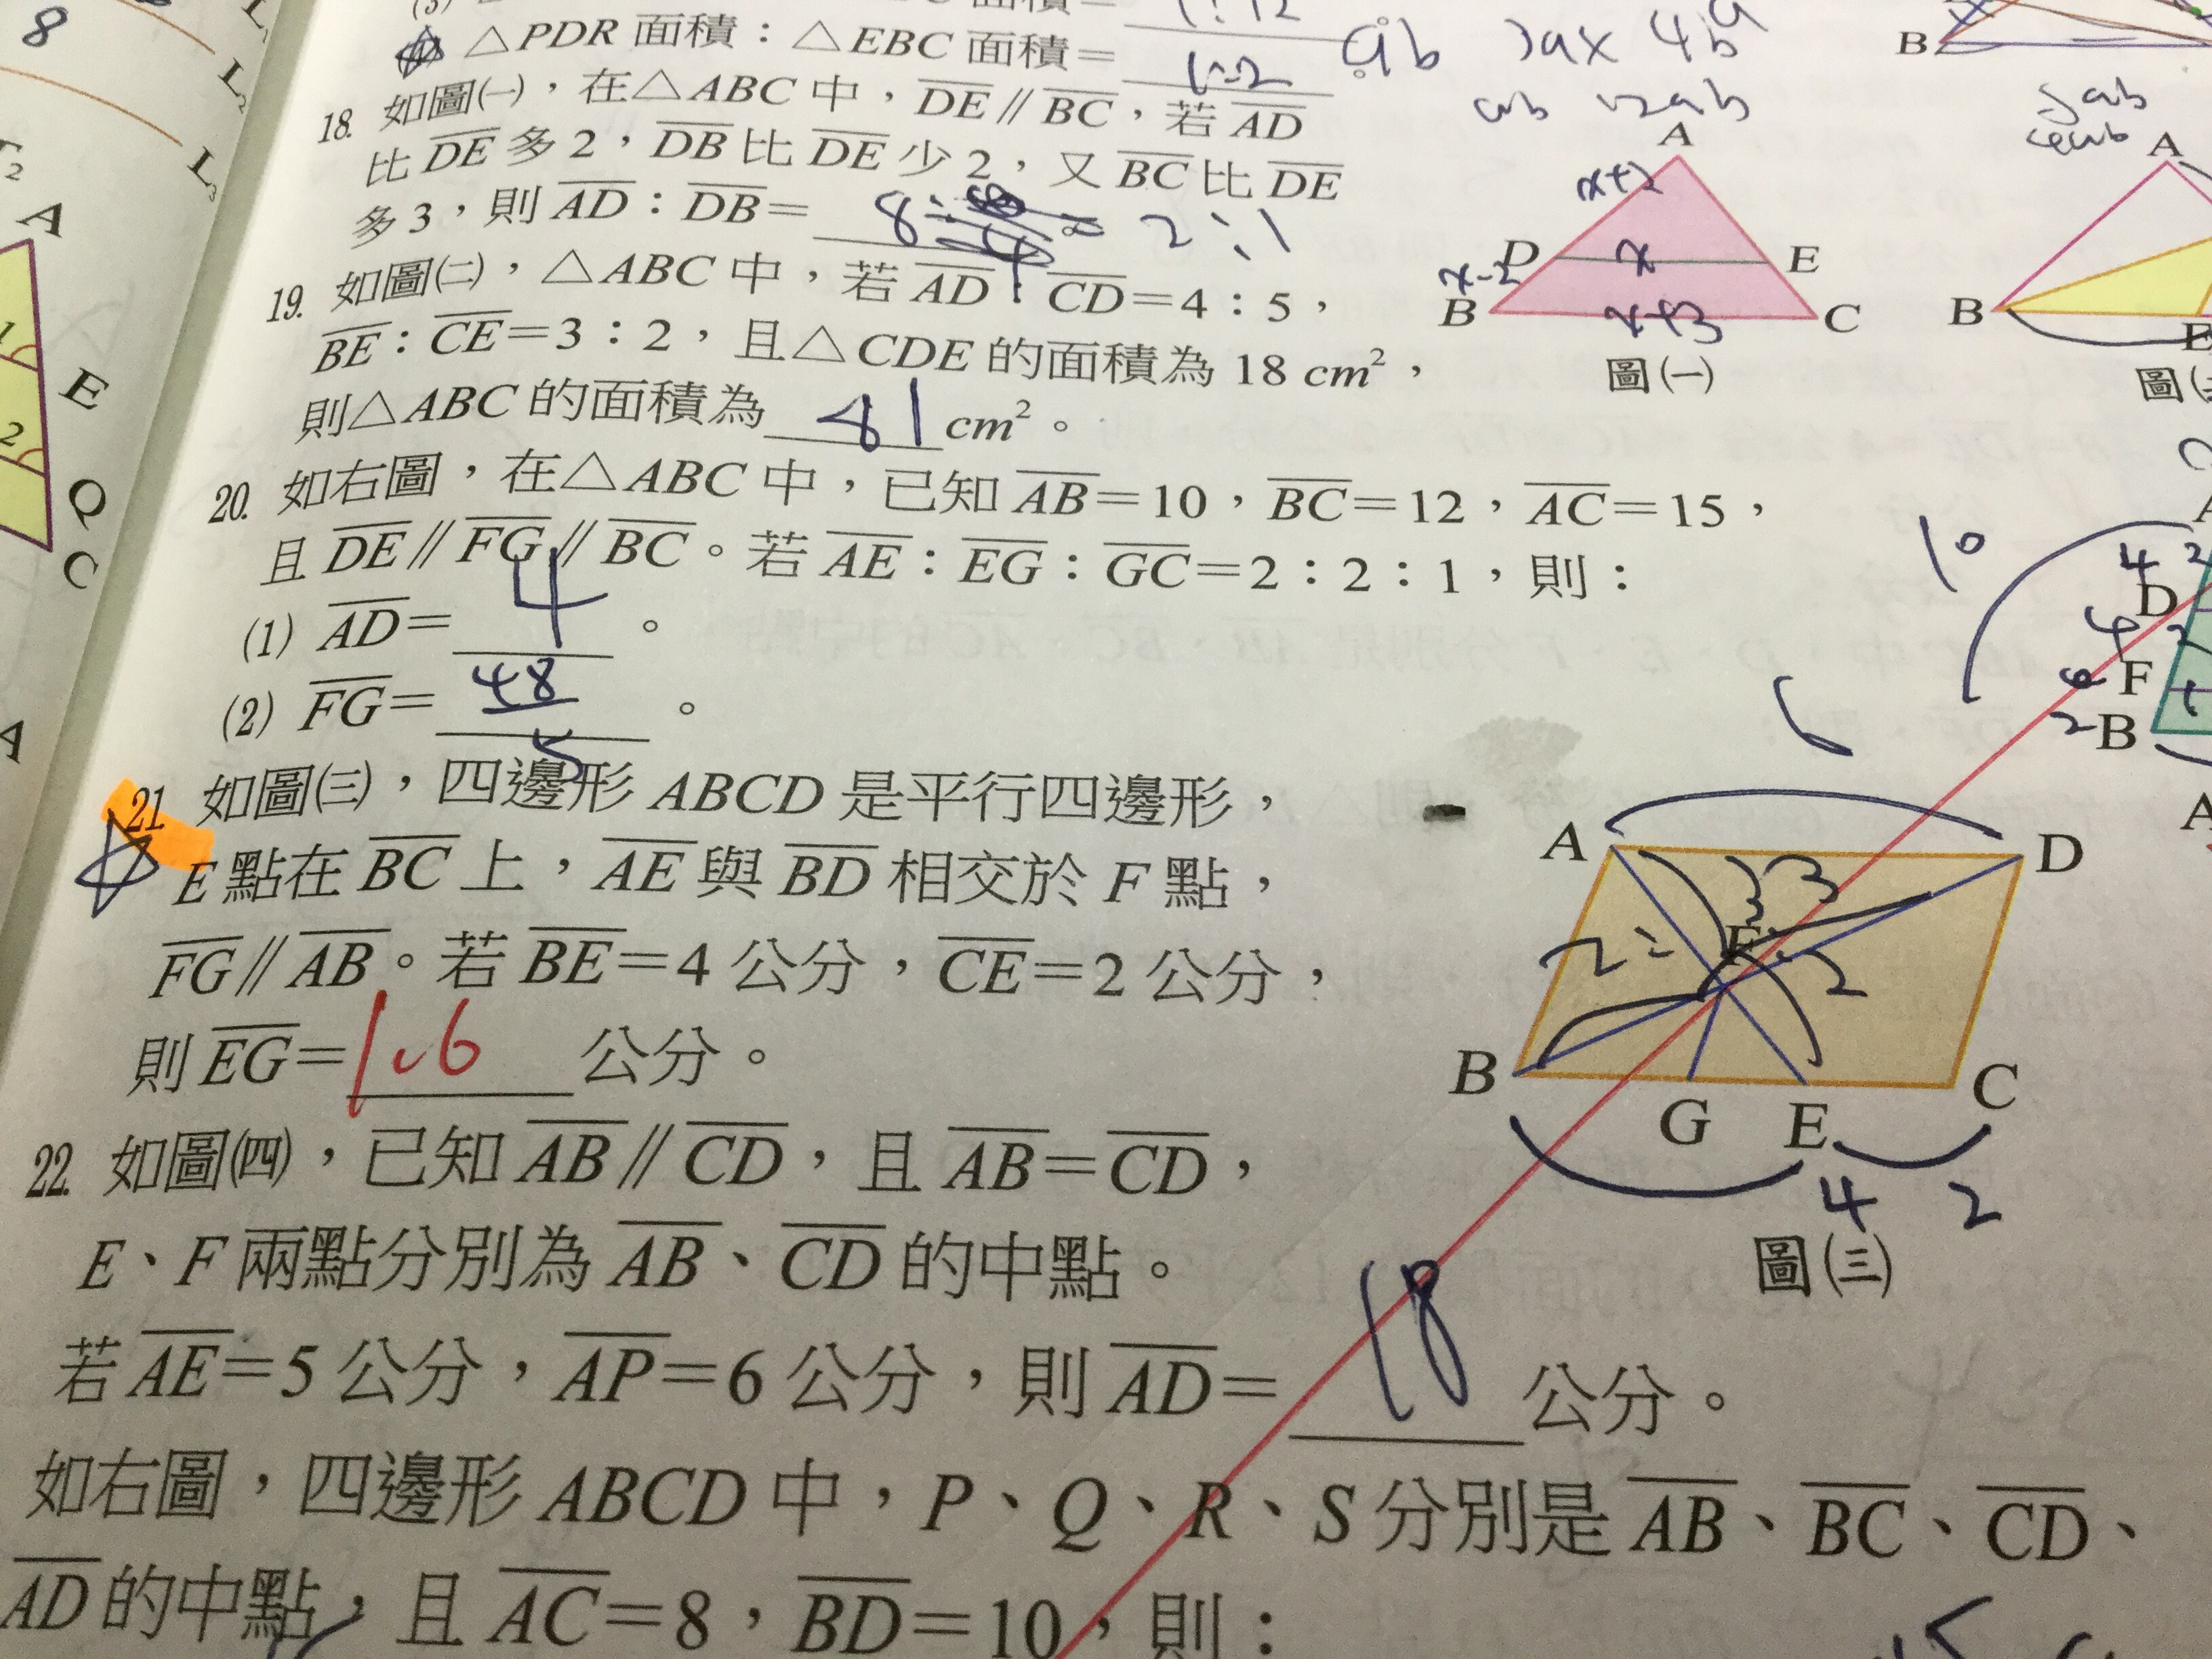 △PDR 面積：△EBC 面積= 1:2
18. 如圖㈠，在△ABC 中，DE∥BC，若 AD
比 DE 多 2，DB 比 DE 少 2，又 BC 比 DE
多 3，則 AD：DB= 8 2:1
19. 如圖㈡，△ABC 中，若 AD：CD=4：5，
BE：CE=3：2，且△CDE 的面積為 18 cm²，
則△ABC 的面積為 81 cm²。
20. 如右圖，在△ABC 中，已知 AB=10，BC=12，AC=15，
且 DE∥FG∥BC。若 AE：EG：GC=2：2：1，則：
(1) AD= 4 。
(2) FG= 48/5 。
21 如圖㈢，四邊形 ABCD 是平行四邊形，
E 點在 BC 上，AE 與 BD 相交於 F 點，
FG∥AB。若 BE=4 公分，CE=2 公分，
則 EG= 1.6 公分。
22. 如圖㈣，已知 AB∥CD，且 AB=CD，
E、F 兩點分別為 AB、CD 的中點。
若 AE=5 公分，AP=6 公分，則 AD= 18 公分。
如右圖，四邊形 ABCD 中，P、Q、R、S 分別是 AB、BC、CD、
AD 的中點，且 AC=8，BD=10，則：
8
A
E
Q
C
A
B
A
x+2
D x E
x-2
B x+3 C
圖㈠
A
B
E
10
4 2
D
4 2
F 1
2 B
6
A D
3 3
2 F 2
B G E C
4 2
圖㈢